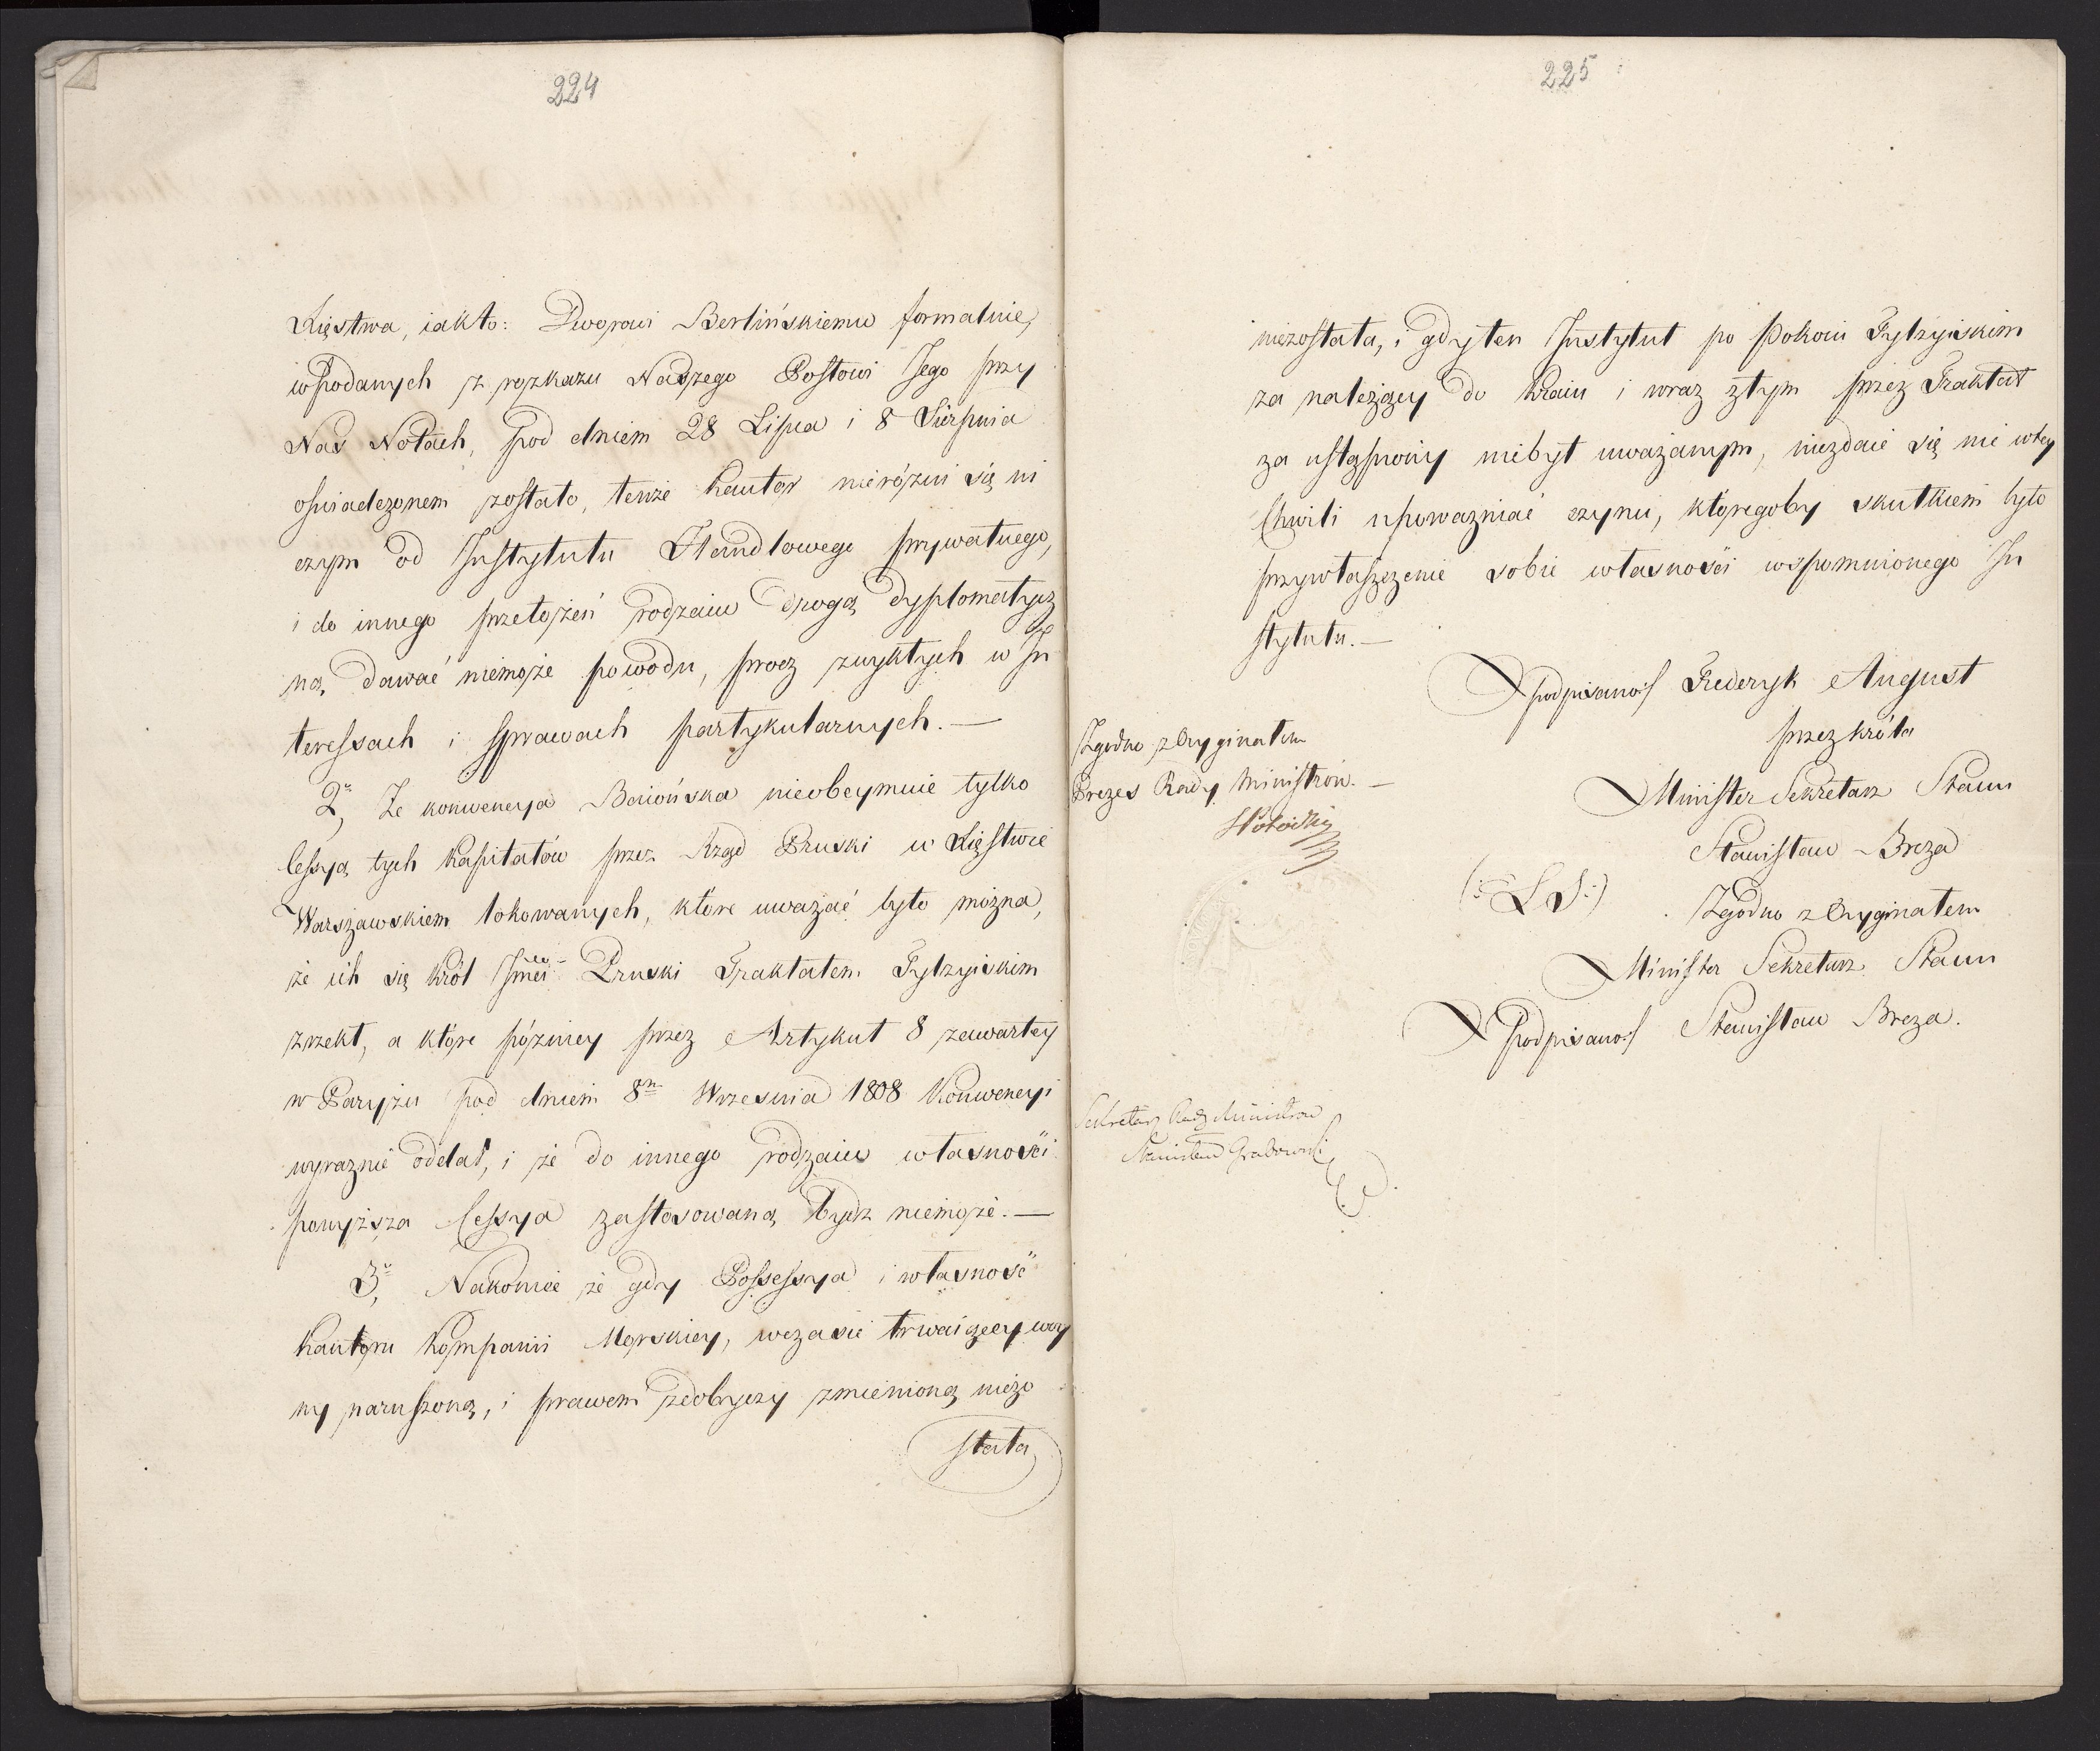 224
Xięstwa, iakto: Dworowi Berlińskiemu formalnie,
wpodanych z rozkazu Naszego Posłowi Jego przy
Nas Notach, pod dniem 28 Lipca i 8 Sierpnia
oświadczonem zostało, tenże Kantor nieróżni się ni
czym od Instytutu Handlowego prywatnego,
i do innego przełożeń rodzaiu drogą dyplomatycz
ną, dawać niemoże powodu, procz zwykłych w In
teressach i sprawach partykularnych. —
2., Ze konwencya Baiońska nieobeymuie tylko
Cessyą tych Kapitałów przez Rząd Pruski w Xięstwie
Warszawskiem lokowanych, które uważać było można,
że ich się Król Jmci Pruski Traktatem Tylzyiskim
zrzekł, a które pózniey przez Artykuł 8 zawartey
w Paryżu pod dniem 8n Wrzesnia 1808 Konwencyi
wyraznie oddał, i że do innego rodzaiu własności
powyższa Cessya zastosowaną bydz niemoże. —
3., Nakoniec że gdy Possessya i własność
Kantoru Kompanii Morskiey, wczasie trwaiącey woy
ny naruszoną, i prawem zdobyczy zmienioną niezo
stała
225
niezostała, i gdy ten Instytut po Pokoiu Tylzyiskim
za należący do Kraiu i wraz ztym przez Traktat
za ustąpiony niebył uważanym, niezdaie się nic wtey
Chwili upoważniać czynu, któregoby skutkiem było
przywłaszczenie sobie własności wspomnionego In
stytutu. —
podpisano/ Frederyk August
przez króla
Minister Sekretarz Stanu
Stanisław Breza
(: L S :)
Zgodno z Oryginałem
Minister Sekretarz Stanu
Podpisano/ Stanisław Breza.
Zgodno z Oryginałem
Prezes Rady Ministrów. —
SPotocki
Sekretarz Rady Ministrow
Stanisław Grabowski